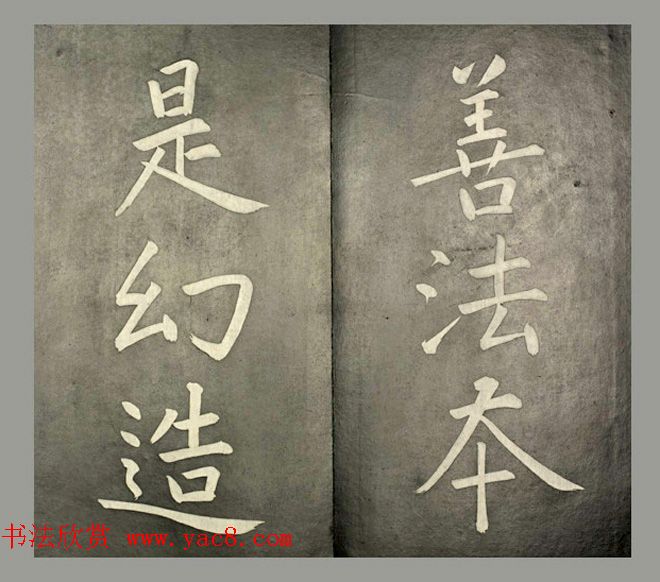 善法本
是幻造
书法欣赏 www.yac8.com